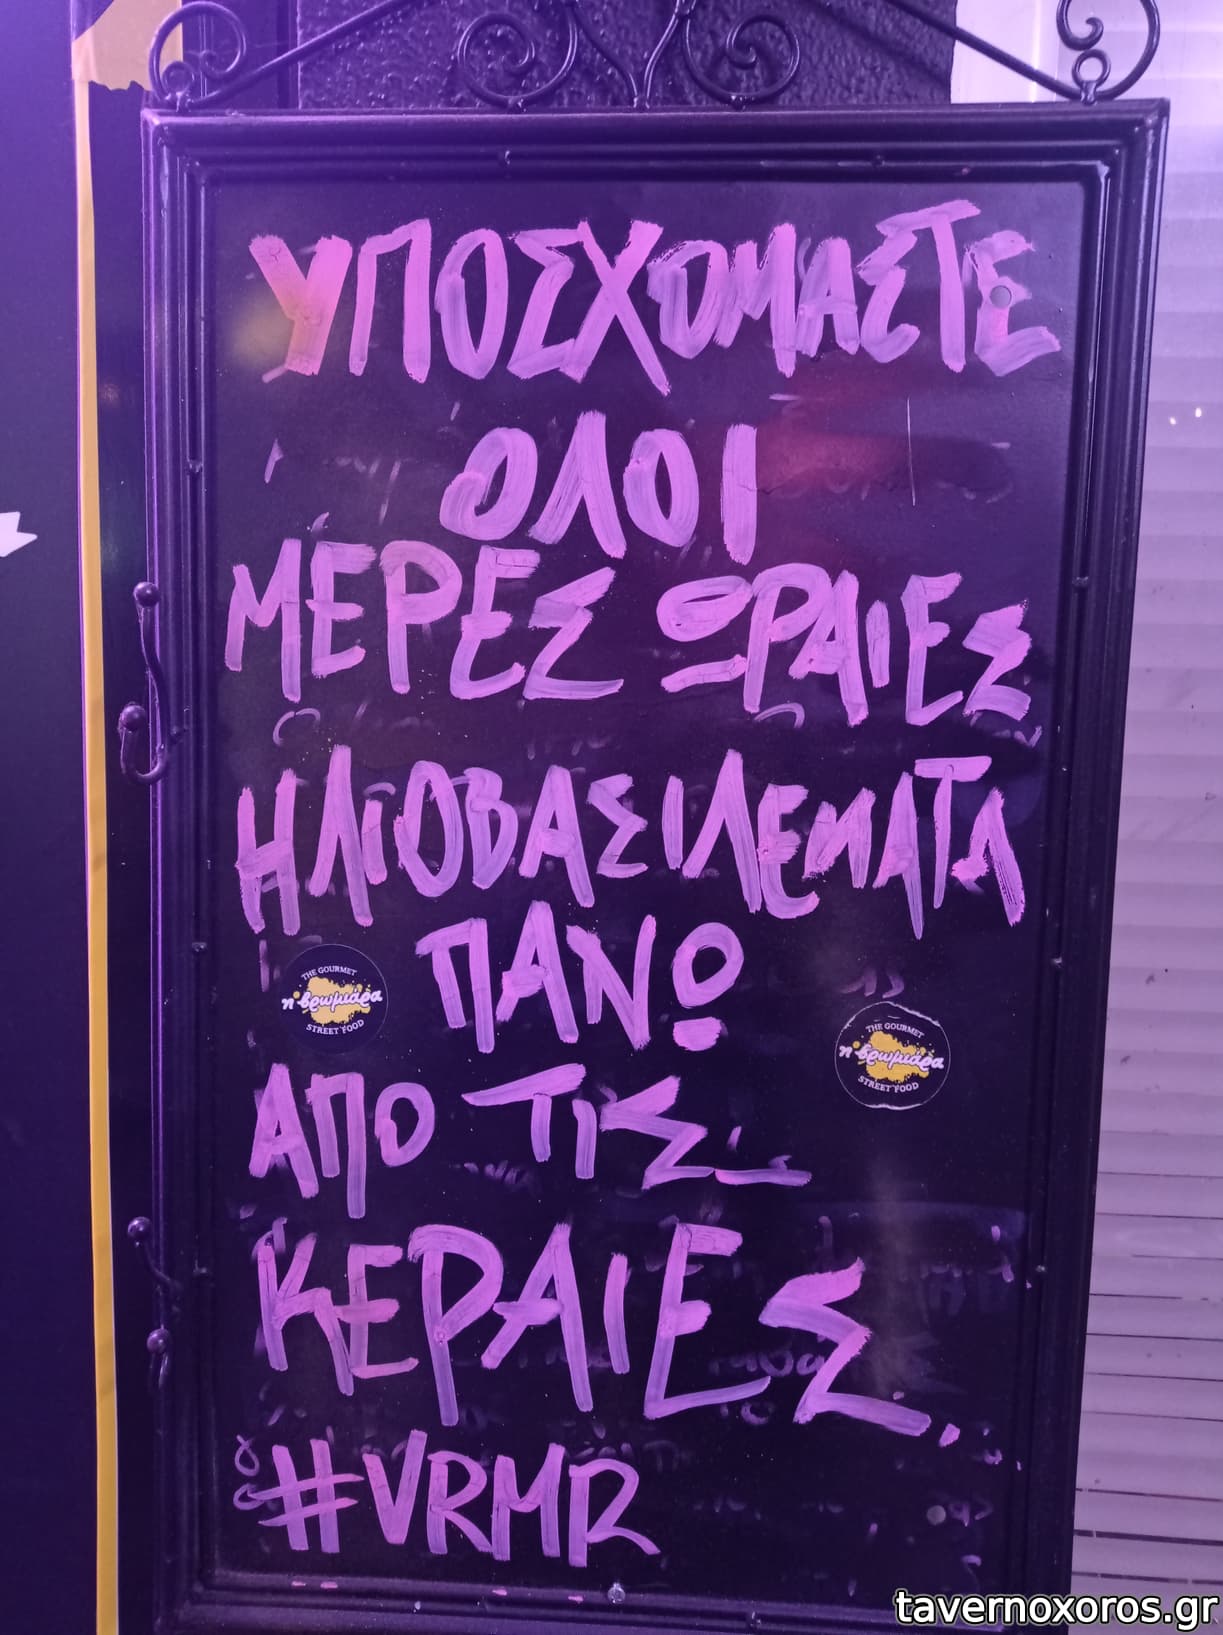 ΥΠΟΣΧΟΜΑΣΤΕ
ΟΛΟΙ
ΜΕΡΕΣ ΩΡΑΙΕΣ
ΗΛΙΟΒΑΣΙΛΕΜΑΤΑ
ΠΑΝΩ
ΑΠΟ ΤΙΣ
ΚΕΡΑΙΕΣ.
#VRMR
THE GOURMET
η βρωμιάρα
STREET FOOD
THE GOURMET
η βρωμιάρα
STREET FOOD
tavernoxoros.gr